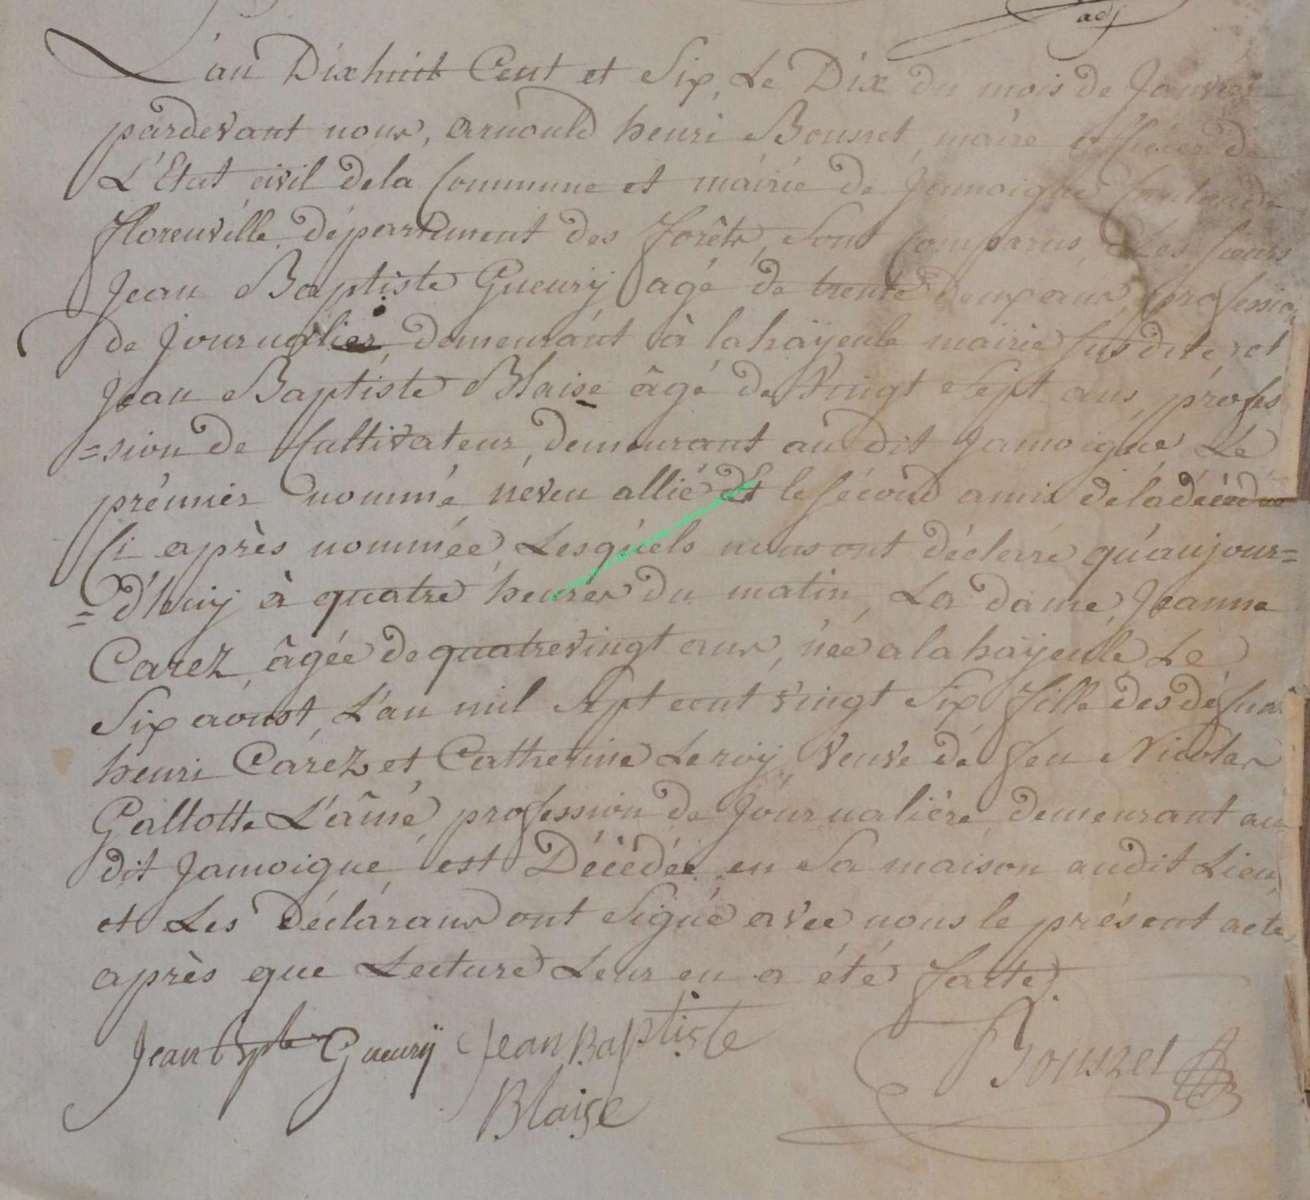 adj
L'an Dixhuit Cent et Six, Le Dix du mois de Janvier
pardevant nous, arnould henri Bousret, maire officier de
L'Etat civil dela Commune et mairie de Jamoigne Canton de
florenville, département des forêts, sont comparus, Les sieurs
Jean Baptiste Gueury agé de trente deux ans, profession
de journalier, demeurant à lahäyeule mairie susdite, et
Jean Baptiste Blaise âgé de vingt sept ans, profes
=sion de Cultivateur, demeurant audit Jamoigne Le
prémier nommé néveu allié et le sécond amis déladécédée
Ci après nommée Lesquels nous ont déclarré qu'aujour=
=d'huij à quatre heures du matin, La dame, Jeanne
Carez, âgée de quatrevingt ans, née a lahäyeule Le
Six aoust, L'an mil sept cent vingt Six fille des défunt
henri Caréz et Catherine Leroij, veuve dé feu Nicolas
Gallotte L'aîné, profession de journaliére demeurant au
dit Jamoigne, est Décédée en Sa maison audit Lieu,
et Les Déclarans ont Signé avec nous le présent acte
après que Lecture Leur en a été faite.
Jean Bpte Gueurÿ Jean Baptiste
Blaise
Bousret